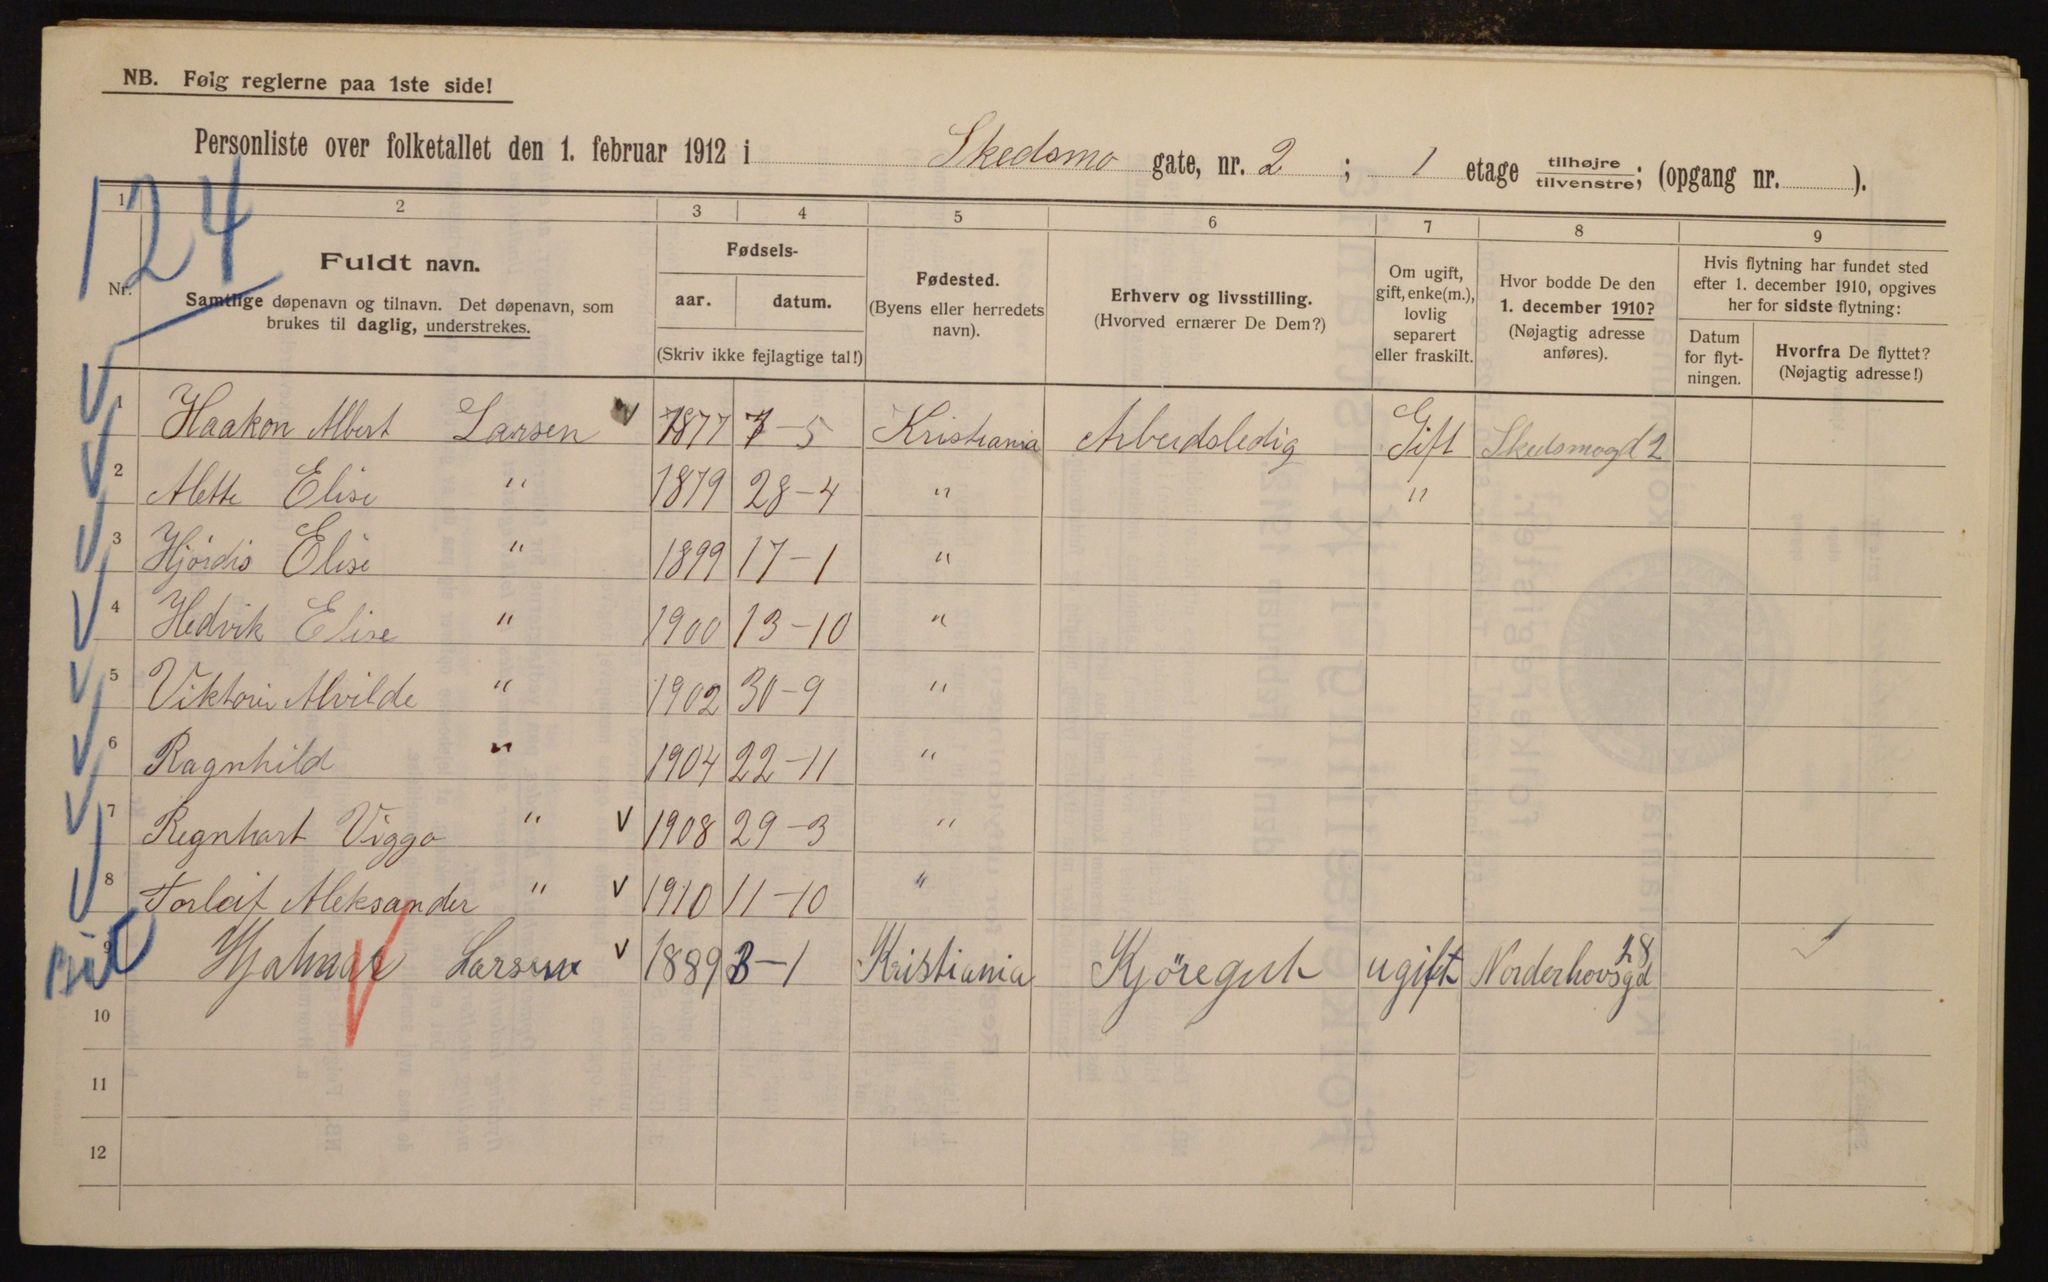 NB. Følg reglerne paa 1ste side!
Personliste over folketallet den 1. februar 1912 i Skedsmo gate, nr. 2 ; 1 etage tilhøjre/tilvenstre; (opgang nr. ).
124
1 2 3 4 5 6 7 8 9
Nr.
Fuldt navn.
Samtlige døpenavn og tilnavn. Det døpenavn, som
brukes til daglig, understrekes.
Fødsels-
aar. datum.
(Skriv ikke fejlagtige tal!)
Fødested.
(Byens eller herredets
navn).
Erhverv og livsstilling.
(Hvorved ernærer De Dem?)
Om ugift,
gift, enke(m.),
lovlig
separert
eller fraskilt.
Hvor bodde De den
1. december 1910?
(Nøjagtig adresse
anføres).
Hvis flytning har fundet sted
efter 1. december 1910, opgives
her for sidste flytning:
Datum
for flyt-
ningen.
Hvorfra De flyttet?
(Nøjagtig adresse!)
1 Haakon Albert Larsen 1877 7-5 Kristiania Arbeidsledig Gift Skedsmogd 2
2 Alette Elise " 1879 28-4 " "
3 Hjördis Elise " 1899 17-1 "
4 Hedvik Elise " 1900 13-10 "
5 Viktori Alvilde " 1902 30-9 "
6 Ragnhild " 1904 22-11 "
7 Regnhart Viggo " 1908 29-3 "
8 Torleif Aleksander " 1910 11-10 "
9 Hjalmar Larsen 1889 3-1 Kristiania Kjöregut ugift Norderhovsgd 28
10
11
12